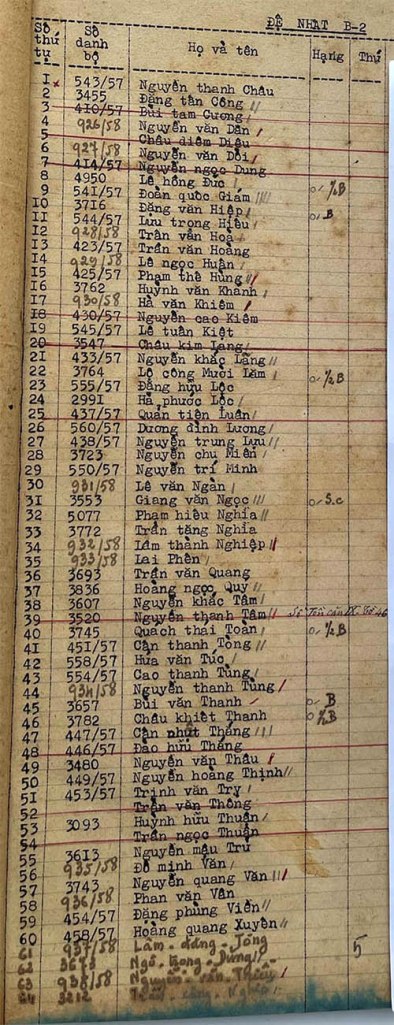 ĐỆ NHẤT B-2
Số thứ tự Số danh bộ Họ và tên Hạng Thứ
I 543/57 Nguyễn thanh Châu
2 3455 Đặng tấn Công
3 410/57 Bùi tam Cương
4 926/58 Nguyễn văn Dần
5 Châu điêm Diệu
6 927/58 Nguyễn văn Dõi
7 414/57 Nguyễn ngọc Dung
8 4950 Lê hồng Đức
9 541/57 Đoàn quốc Giám ½B
IO 3716 Đặng văn Hiệp B
II 544/57 Lưu trọng Hiếu
I2 928/58 Trần văn Hoà
I3 423/57 Trần văn Hoàng
I4 929/58 Lê ngọc Huận
I5 425/57 Phạm thế Hùng
I6 3762 Huỳnh văn Khanh
I7 930/58 Hà văn Khiêm
I8 430/57 Nguyễn cao Kiêm
I9 545/57 Lê tuấn Kiệt
20 3547 Châu kim Lang
2I 433/57 Nguyễn khắc Lãng
22 3764 Lộ công Mười Lăm ½B
23 555/57 Đặng hữu Lộc
24 299I Hà phước Lộc
25 437/57 Quan tiên Luân
26 560/57 Dương đình Lương
27 438/57 Nguyễn trung Lưu
28 3723 Nguyễn chu Miên
29 550/57 Nguyễn trí Minh
30 931/58 Lê văn Ngàn
3I 3553 Giang văn Ngọc S.c
32 5077 Phạm hiếu Nghĩa
33 3772 Trần tăng Nghĩa
34 932/58 Lâm thành Nghiệp
35 933/58 Lai Phên
36 3693 Trần văn Quang
37 3836 Hoàng ngọc Quy
38 3607 Nguyễn khắc Tâm
39 3520 Nguyễn thanh Tâm
40 3745 Quách thai Toàn ½B
4I 45I/57 Cần thanh Tòng
42 558/57 Hứa văn Túc
43 554/57 Cao thanh Tùng
44 934/58 Nguyễn thanh Tùng
45 3657 Bùi văn Thanh B
46 3782 Châu khiết Thanh ½B
47 447/57 Cần nhựt Thắng
48 446/57 Đào hữu Thắng
49 3480 Nguyễn văn Thâu
50 449/57 Nguyễn hoàng Thịnh
5I 453/57 Trịnh văn Try
52 Trần văn Thông
53 3093 Huỳnh hữu Thuận
54 Trần ngọc Thuận
55 36I3 Nguyễn mậu Trừ
56 935/58 Đỗ minh Văn
57 3743 Nguyễn quang Văn
58 936/58 Phan văn Vân
59 454/57 Đặng phùng Viễn
60 458/57 Hoàng quang Xuyên
61 937/58 Lâm
62 3673 Ngô trọng 5
63 938/58 Nguyễn văn
64 3212